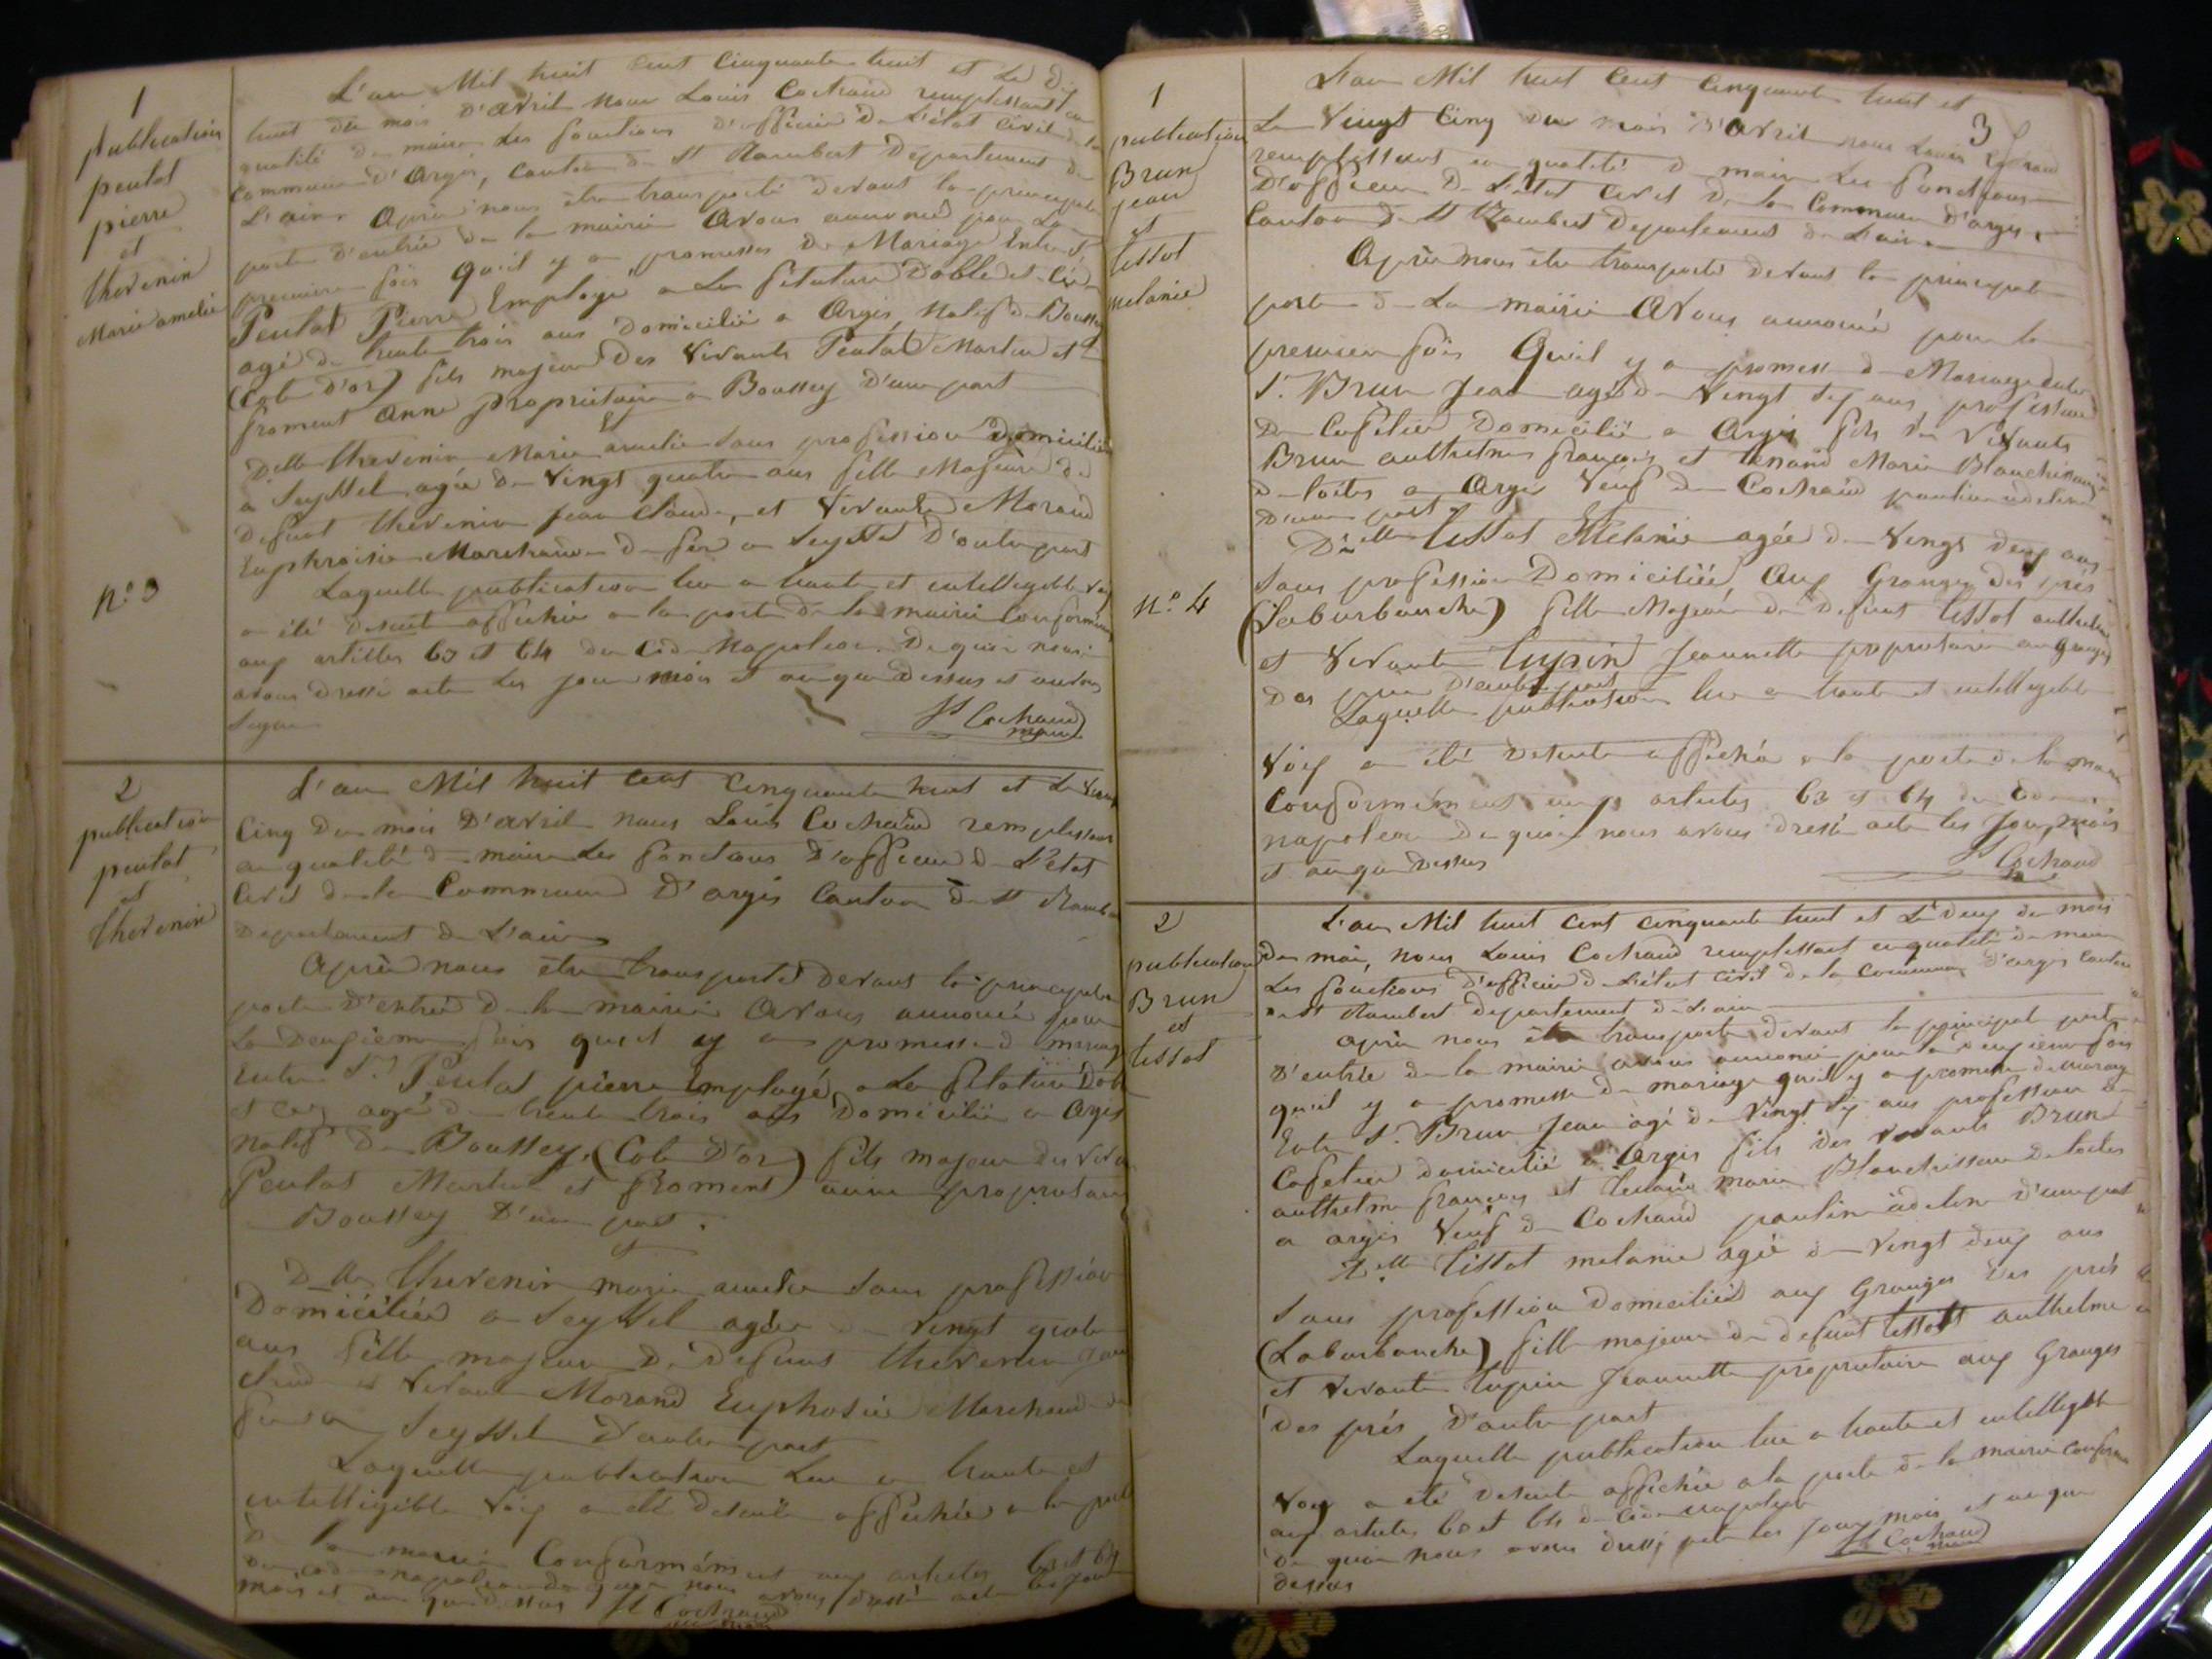 1
publication
peutot
pierre
et
thevenin
Marie amelie
L'an Mil huit cent cinquante huit et le dix
huit du mois d'avril nous Louis Cochaud remplissant en
qualité de maire les fonctions d'officier de L'état civil de la
Commune d'Argis, canton de St Rambert Departement de
L'ain Après nous être transporté devant la principale
porte d'entrée de la mairie Avons annoncé pour La
premiere fois Qu'il y a promesses de Mariage Entre Sr
Peutot Pierre Employé a La filature
agé de trente trois ans Domicilié a Argis, Natif de Boussey
(Cote d'or) fils majeur Des Vivants Peutot Martin et
froment Anne propriétaire a Boussey D'une part
Et
Delle thevenin Marie amelie Sans profession Domiciliée
a Seyssel agée de Vingt quatre ans fille Majeure de
Defunt thevenin Jean Claude, et Vivante Morand
Euphroisie Marchande de fer a Seyssel D'autre part
Laquelle publication lue a haute et intelligible voix
a été desuite affichée a la porte de la mairie conformément
aux articles 63 et 64 du Code Napoleon. De quoi nous
avons dressé acte Les jour mois et an que Dessus et avons
Signé
Ls Cochaud
maire
No 3
2
publication
peutot
et
thevenin
L'an Mil huit cent cinquante huit et Le Vingt
Cinq Du mois D'avril nous Louis Cochaud remplissant
en qualité de maire Les fonctions D'officier de L'état
Civil de la Commune D'argis Canton de St Rambert
Departement de L'ain
Après nous être transporté Devant la principale
porte D'entrée de la mairie Avons annoncé pour
La Deuxieme fois qu'il y a promesse de mariage
Entre Sr Peutot pierre Employé a La filature
et Cie agé de trente trois ans Domicilié a Argis
Natif De Boussey (Cote D'or) fils majeur des Vivants
Peutot Martin et Froment anne propriétaire
Boussey D'une part.
et
Delle thevenin marie amelie Sans profession
Domiciliée a Seyssel agée de Vingt quatre
ans fille majeure De Defunt thevenin Jean
Claude et Vivante Morand Euphosie Marchande de
fer a Seyssel D'autre part
Laquelle publication Lue a haute et
intelligible Voix a été desuite affichée a la porte
De la mairie Conformément aux articles 63 et 64
Du code napoleon de quoi nous avons dressé acte les jour
mois et an que dessus Ls Cochaud
maire
3
1
publication
Brun
Jean
et
tissot
melanie
L'an Mil huit Cent Cinquante huit et
Le Vingt Cinq du mois d'Avril nous Louis Cochaud
remplissant en qualité de maire Les fonctions
D'officier De L'état Civil De la Commune D'argis
Canton de St Rambert Departement de L'ain
Après nous être transporté devant la principale
porte de La mairie Avons annoncé pour la
premiere fois Qu'il y a promesse de Mariage entre
Sr Brun Jean agé de Vingt Six ans, profession
De Cafetier Domicilié a Argis fils des Vivants
Brun anthelme françois et Tenand Marie Blanchisseuse
de toiles a Argis Veuf de Cochaud pauline adeline
D'une part Et
Delle tissot Melanie agée de Vingt deux ans
Sans profession Domiciliée Aux Granges Des prés
(Laburbanche) fille Majeure de Defunt tissot anthelme
et Vivante Lupin Jeannette propriétaire aux granges
Des prés D'autre part
Laquelle publication lue a haute et intelligible
Voix a été Desuite affichée a la porte de la mairie
Conformément aux articles 63 et 64 du Code
napoleon de quoi nous avons dressé acte les Jour, mois
et an que dessus
Ls Cochaud
No 4
2
publication
Brun
et
tissot
L'an Mil huit cent cinquante huit et Le deux du mois
De mai, nous Louis Cochaud remplissant en qualité de maire
Les fonctions D'officier de L'état civil de la commune d'argis canton
de St Rambert departement de L'ain
après nous être transporté devant la principal porte
D'entrée de la mairie avons annoncé pour la deuxieme fois
qu'il y a promesse de mariage qu'il y a promesse de mariage
Entre Sr Brun Jean agé de Vingt Six ans profession de
Cafetier domicilié a Argis fils des vivants Brun
anthelme françois et Tenand marie Blanchisseuse de toiles
a argis Veuf de Cochaud pauline adeline D'une part
Delle tissot melanie agée de Vingt deux ans
Sans profession Domiciliée aux Granges Des prés
(Laburbanche) fille majeure de defunt tissot anthelme
et vivante lupin Jeannette propriétaire aux Granges
Des prés D'autre part
Laquelle publication lue a haute et intelligible
Voix a été desuite affichée a la porte de la mairie conforme
aux articles 63 et 64 du Code napoleon
de quoi nous avons dressé acte les jour, mois et an que
dessus
Ls Cochaud
maire